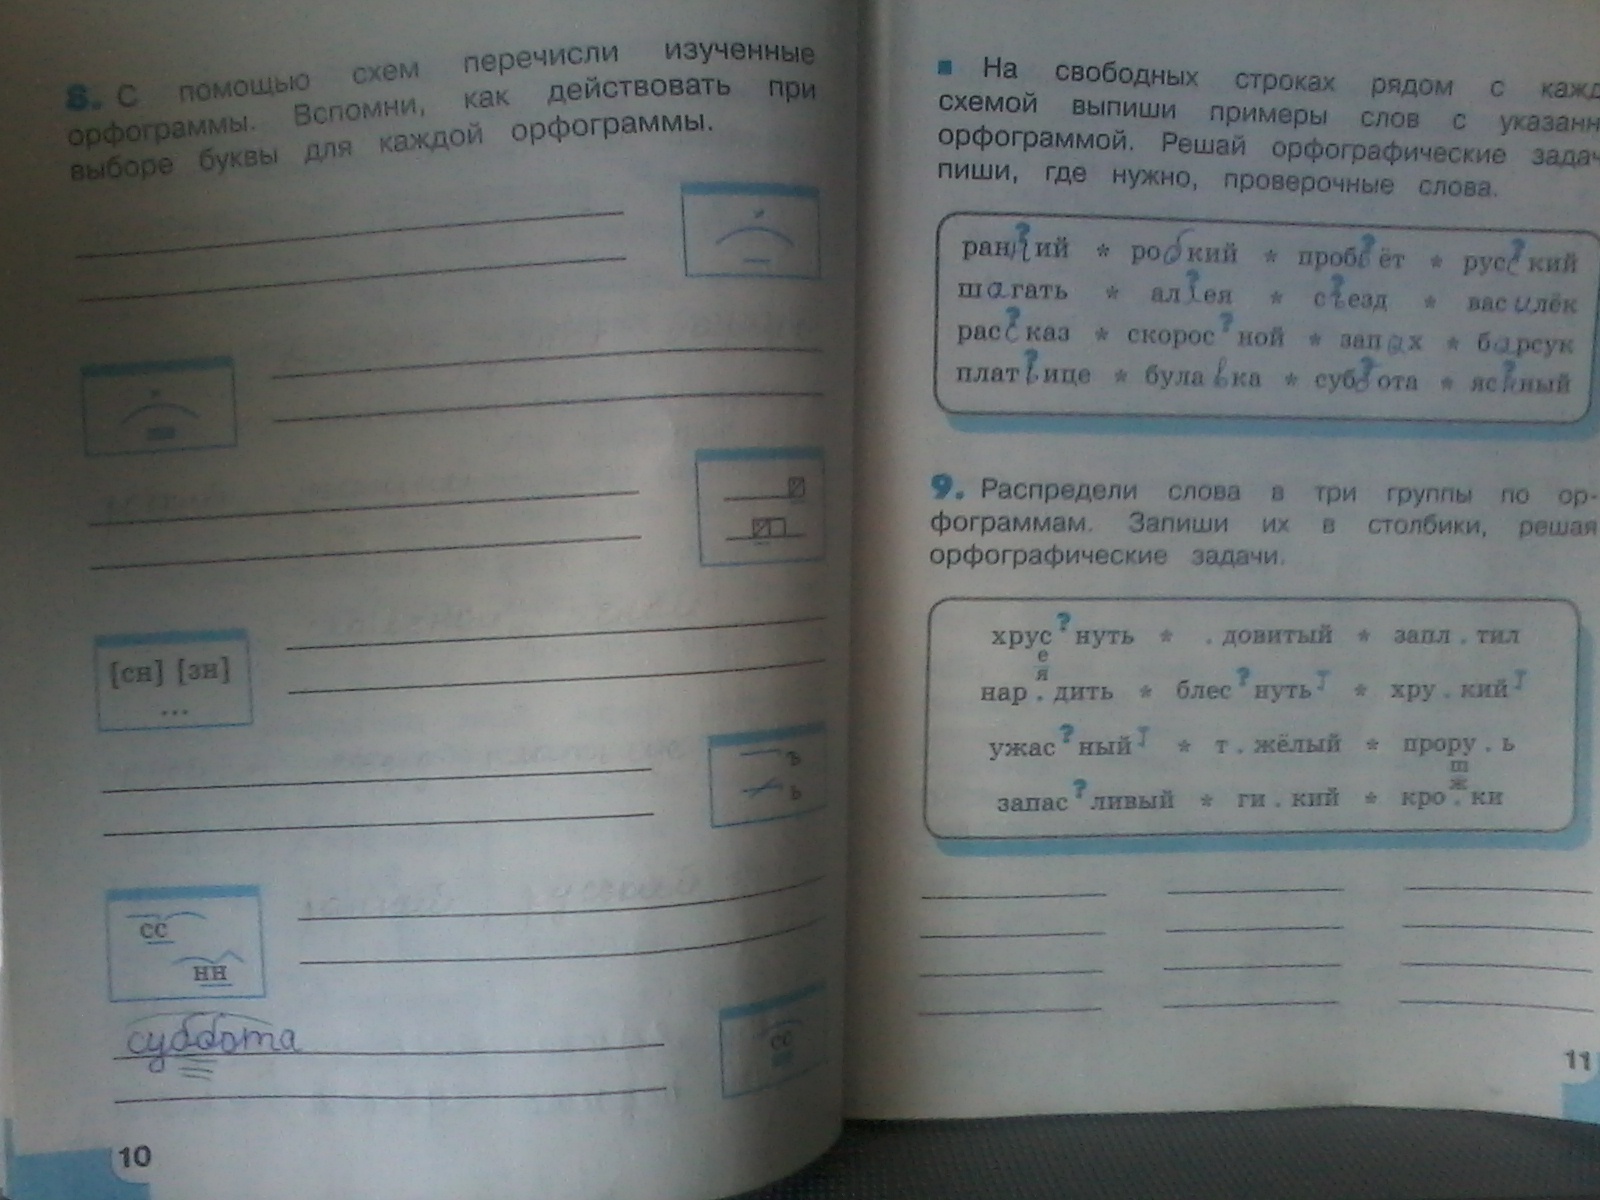 8. С помощью схем перечисли изученные
орфограммы. Вспомни, как действовать при
выборе буквы для каждой орфограммы.
[сн] [зн]
...
ъ
ь
сс
нн
суббота
сс
10
На свободных строках рядом с кажд
схемой выпиши примеры слов с указанн
орфограммой. Решай орфографические задач
пиши, где нужно, проверочные слова.
ран?ний * робкий * проб?ьёт * рус?ский
шагать * ал?лея * с?ъезд * василёк
рас?сказ * скорос?ной * запах * барсук
плат?ьице * булавка * суб?бота * яс?ный
9. Распредели слова в три группы по ор-
фограммам. Запиши их в столбики, решая
орфографические задачи.
хрус?нуть * .довитый * запл.тил
е
я
нар.дить * блес?нуть * хру.кий
ужас?ный * т.жёлый * прору.ь
ш
ж
запас?ливый * ги.кий * кро.ки
11